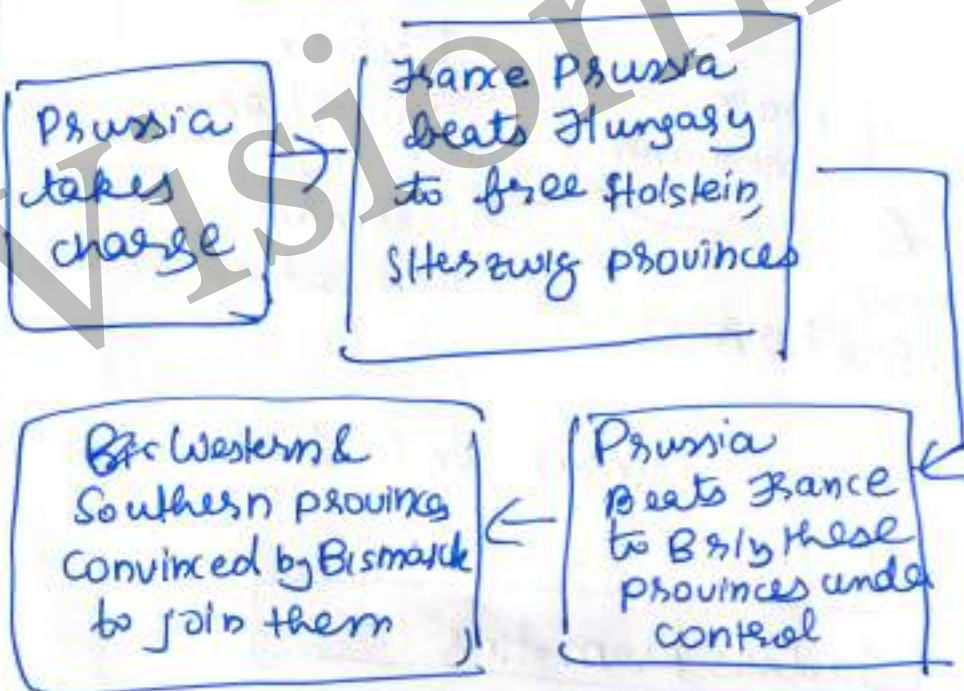 Prussia
takes
charge
France Prussia
beats Hungary
to free Holstein,
SHerzwig provinces
Prussia
Beats France
to Bring these
provinces under
control
Western &
Southern provinces
convinced by Bismarck
to join them
Vision